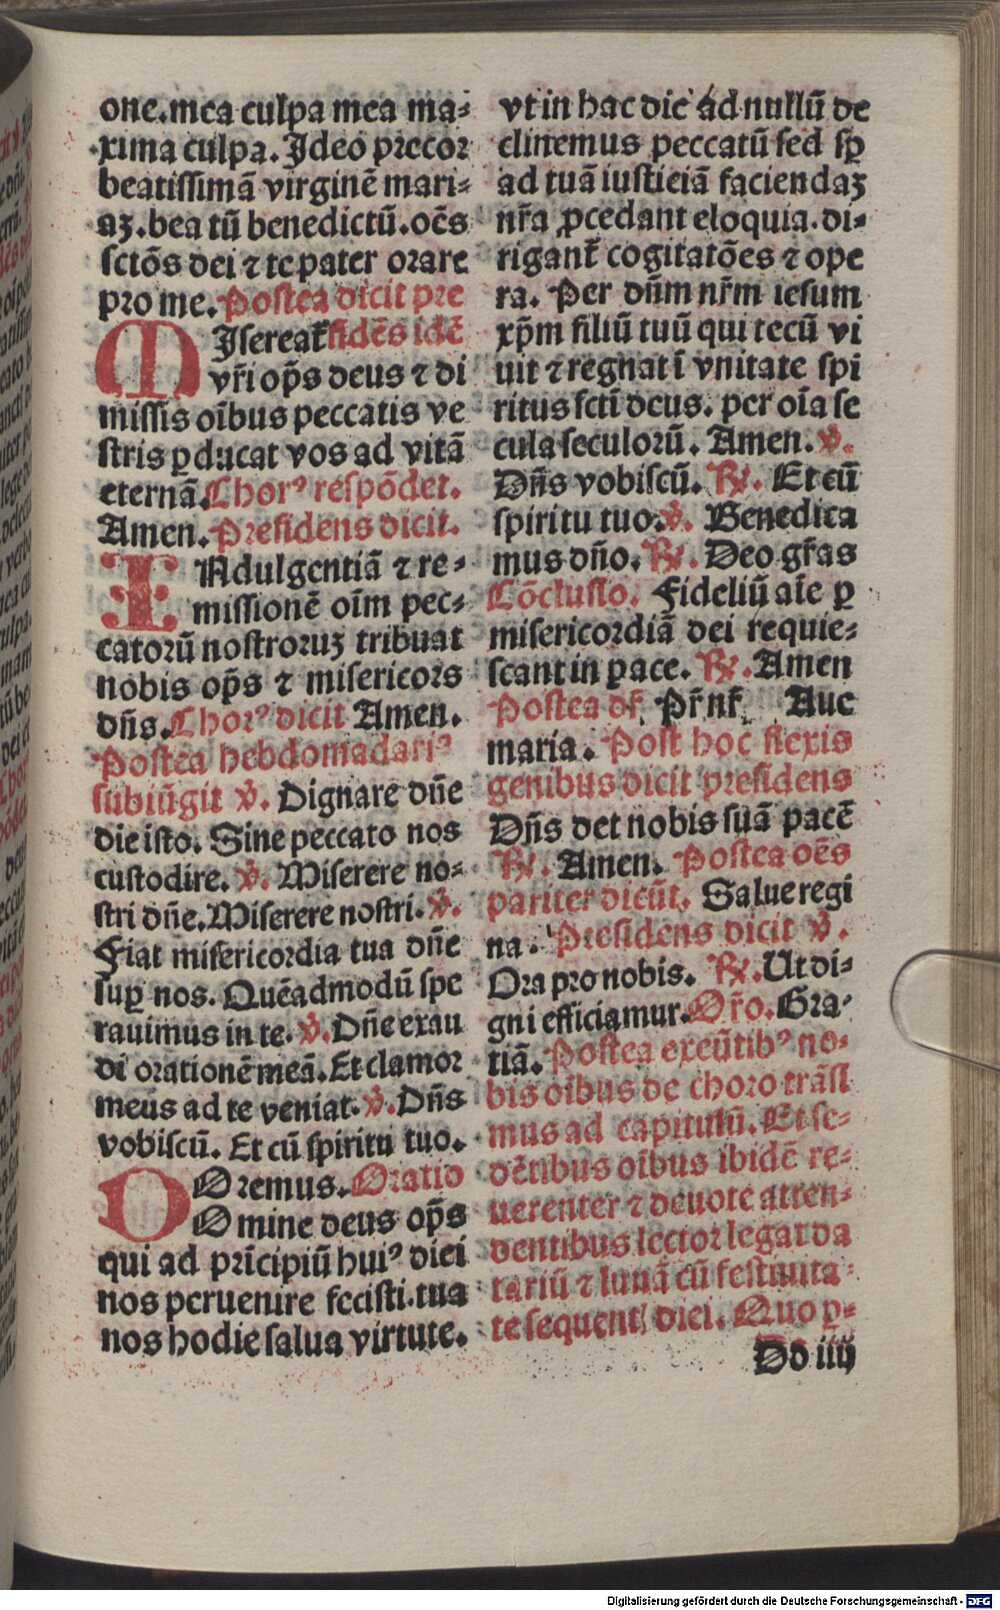 one.mea culpa mea ma⸗
xima culpa. Ideo precor
beatissimā virginē mari⸗
aꝫ.bea tū benedictū.oēs
sctōs dei ⁊ te pater orare
pro me. Postea dicit pre
MIsereat᷑ sidēs idē
vr̄i op̄s deus ⁊ di
missis oībus peccatis ve
stris ꝑducat vos ad vitā
eternā. Chorꝰ respōdet.
Amen. Presidens dicit.
INdulgentiā ⁊ re⸗
missionē oīm pec⸗
catorū nostroruꝫ tribuat
nobis op̄s ⁊ misericors
dn̄s. Chorꝰ dicit Amen.
Postea hebdomadariꝰ
subiūgit ℣. Dignare dn̄e
die isto. Sine peccato nos
custodire. ℣. Miserere no⸗
stri dn̄e. Miserere nostri. ℣.
Fiat misericordia tua dn̄e
suꝑ nos. Quēadmodū spe
rauimus in te. ℣. Dn̄e exau
di orationē meā. Et clamor
meus ad te veniat. ℣. Dn̄s
vobiscū. Et cū spiritu tuo.
Oremus. Oratio
DOmine deus op̄s
qui ad prīcipiū huiꝰ diei
nos peruenire fecisti.tua
nos hodie salua virtute.
vt in hac die ad nullū de
clinemus peccatū sed sꝑ
ad tuā iusticiā faciendaꝫ
nr̄a ꝓcedant eloquia. di⸗
rigant᷑ cogitatōes ⁊ ope
ra. Per dn̄m nr̄m iesum
xp̄m filiū tuū qui tecū vi
uit ⁊ regnat ī vnitate spi
ritus scti deus. per oīa se
cula seculorū. Amen. ℣.
Dn̄s vobiscū. ℟. Et cū
spiritu tuo. ℣. Benedica
mus dn̄o. ℟. Deo gr̄as
Cōclusio. Fideliū aīe ꝑ
misericordiā dei requie⸗
scant in pace. ℟. Amen
Postea dr̄. Pr̄ nr̄. Aue
maria. Post hoc flexis
genibus dicit presidens
Dn̄s det nobis suā pacē
℟. Amen. Postea oēs
pariter dicūt. Salue regi
na. Presidens dicit ℣.
Ora pro nobis. ℟. Ut di⸗
gni efficiamur. Or̄o. Gra⸗
tiā. Postea exeūtibꝰ no⸗
bis oībus de choro trāsi
mus ad capitulū. Et se⸗
dētibus oībus ibidē re⸗
uerenter ⁊ deuote atten⸗
dentibus lector legat da
tariū ⁊ lunā cū festiuita⸗
te sequent diei. Quo ꝑ⸗
Dd iiij
Digitalisierung gefördert durch die Deutsche Forschungsgemeinschaft - DFG